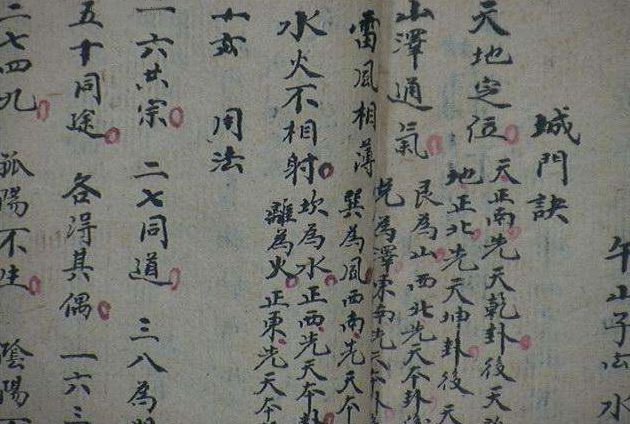 午山子水
城門訣
天地定位
天正南先天乾卦後天
地正北先天坤卦後天
山澤通氣
艮為山西北先天本卦後
兌為澤東南先天本卦
雷風相薄
巽為風西南先天本
水火不相射
坎為水正西先天本
離為火正東先天本
玄 用法
一六共宗 二七同道 三八為
五十同途 各得其偶 一六三
二七四九 孤陽不生 陰陽